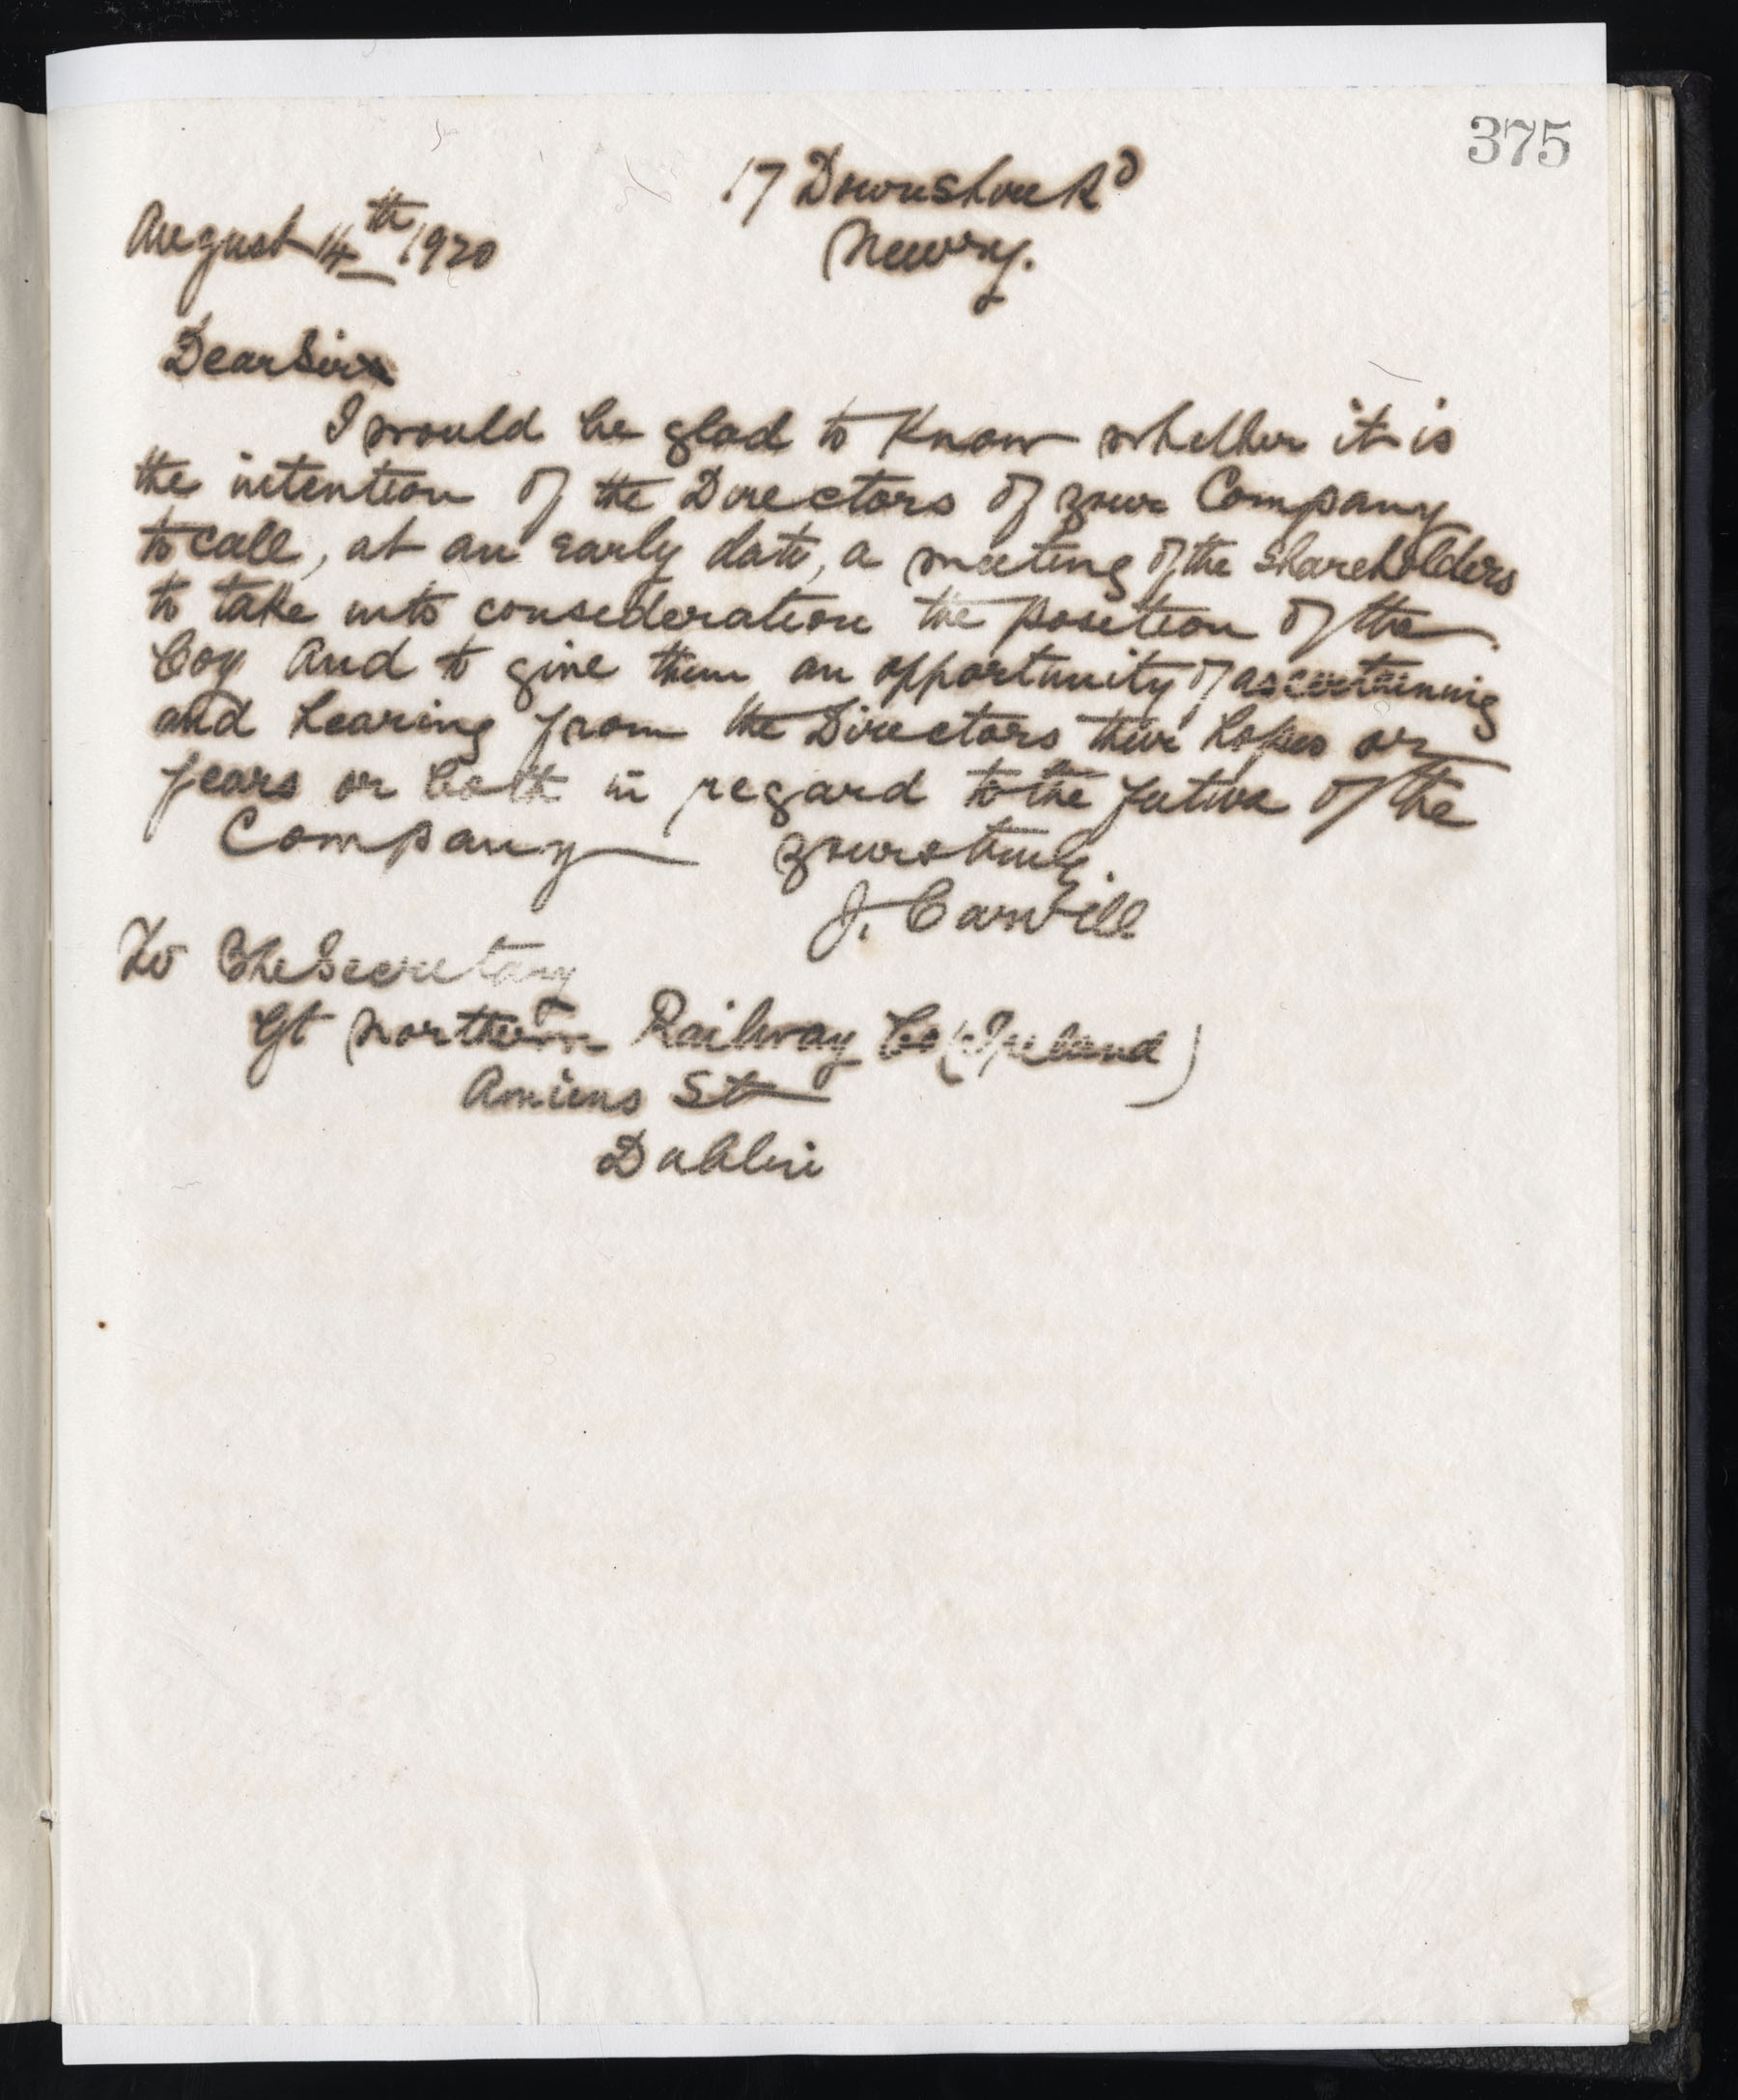 375
17 Downshire Rd
Newry.
August 14th 1920
Dear Sir
I would be glad to know whether it is
the intention of the Directors of your Company
to call, at an early date, a meeting of the shareholders
to take into consideration the position of the
Coy and to give them an opportunity of ascertaining
and hearing from the Directors their hopes or
fears or both in regard to the future of the
Company yours truly
J. Carvill
To The Secretary
Gt Northern Railway Co (Ireland)
Amiens St
Dublin